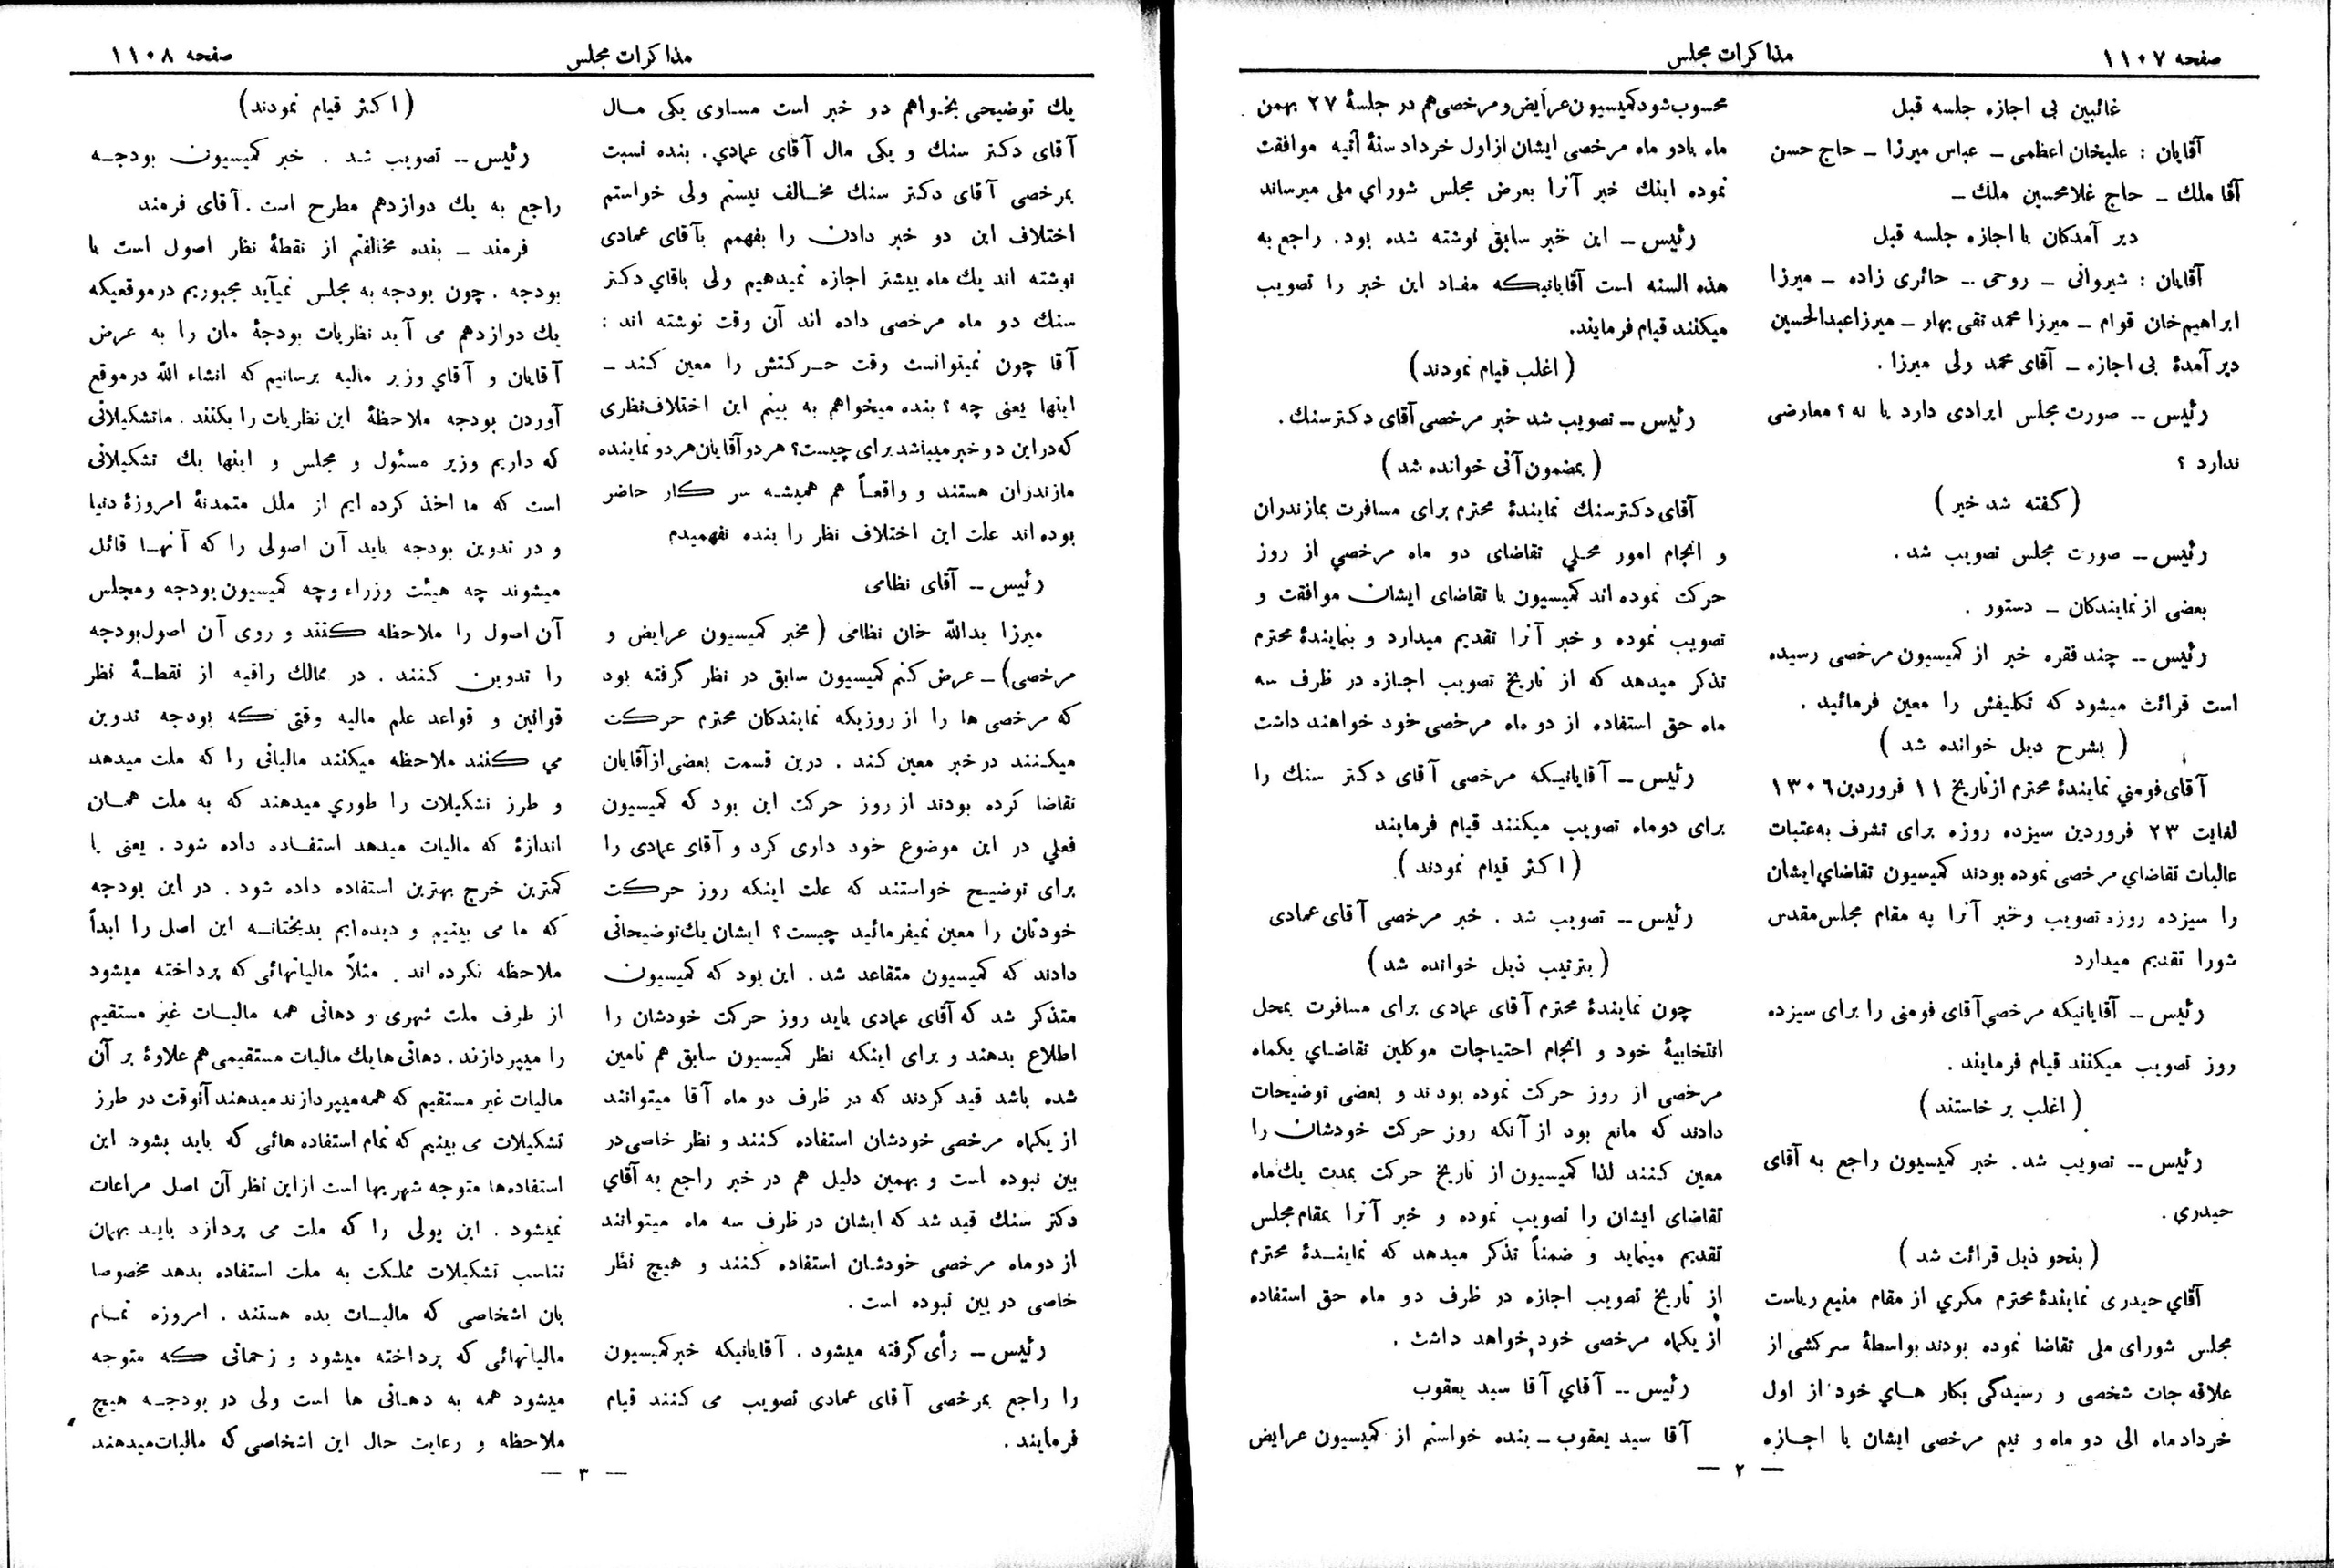 صفحه ۱۱۰۷
مذاکرات مجلس
غائبین بی اجازه جلسه قبل
آقایان : علیخان اعظمی – عباس میرزا – حاج حسن
آقا ملك – حاج غلامحسین ملك –
دیر آمدگان با اجازه جلسه قبل
آقایان : شیروانی – روحی – حائری زاده – میرزا
ابراهیم خان قوام – میرزا محمد تقی بهار – میرزا عبدالحسین
دیر آمدهٔ بی اجازه – آقای محمد ولی میرزا .
رئیس – صورت مجلس ایرادی دارد یا نه ؟ معارضی
ندارد ؟
( گفته شد خیر )
رئیس – صورت مجلس تصویب شد .
بعضی از نمایندگان – دستور .
رئیس – چند فقره خبر از کمیسیون مرخصی رسیده
است قرائت میشود که تکلیفش را معین فرمائید .
( بشرح ذیل خوانده شد )
آقای فومنی نمایندهٔ محترم از تاریخ ۱۱ فروردین ۱۳۰۶
لغایت ۲۳ فروردین سیزده روزه برای تشرف به عتبات
عالیات تقاضاي مرخصی نموده بودند کمیسیون تقاضاي ایشان
را سیزده روزه تصویب و خبر آنرا به مقام مجلس مقدس
شورا تقدیم میدارد
رئیس – آقایانیکه مرخصي آقای فومنی را برای سیزده
روز تصویب میکنند قیام فرمایند .
( اغلب بر خاستند )
رئیس – تصویب شد . خبر کمیسیون راجع به آقای
حیدري .
( بنحو ذیل قرائت شد )
آقاي حیدری نمایندهٔ محترم مکري از مقام منیع ریاست
مجلس شورای ملی تقاضا نموده بودند بواسطهٔ سرکشی از
علاقه جات شخصی و رسیدگی بکار هاي خود از اول
خرداد ماه الی دو ماه و نیم مرخصی ایشان با اجازه
محسوب شود کمیسیون عرایض و مرخصی هم در جلسهٔ ۲۷ بهمن
ماه بادو ماه مرخصی ایشان از اول خرداد سنهٔ آتیه موافقت
نموده اینك خبر آنرا بعرض مجلس شوراي ملی میرساند
رئیس – این خبر سابق نوشته شده بود . راجع به
هذه السنه است آقایانیکه مفاد این خبر را تصویب
میکنند قیام فرمایند.
( اغلب قیام نمودند )
رئیس – تصویب شد خبر مرخصی آقای دکتر سنك .
( بمضمون آتی خوانده شد )
آقای دکتر سنك نمایندهٔ محترم برای مسافرت بمازندران
و انجام امور محلي تقاضای دو ماه مرخصي از روز
حرکت نموده اند کمیسیون با تقاضای ایشان موافقت و
تصویب نموده و خبر آنرا تقدیم میدارد و بنمایندهٔ محترم
تذکر میدهد که از تاریخ تصویب اجازه در ظرف سه
ماه حق استفاده از دو ماه مرخصی خود خواهند داشت
رئیس – آقایانیکه مرخصی آقای دکتر سنك را
برای دوماه تصویب میکنند قیام فرمایند
( اکثر قیام نمودند )
رئیس – تصویب شد . خبر مرخصی آقای عمادی
( بترتیب ذیل خوانده شد )
چون نمایندهٔ محترم آقای عمادی برای مسافرت بمحل
انتخابیهٔ خود و انجام احتیاجات موکلین تقاضاي یکماه
مرخصی از روز حرکت نموده بودند و بعضی توضیحات
دادند که مانع بود از آنکه روز حرکت خودشان را
معین کنند لذا کمیسیون از تاریخ حرکت بمدت یك ماه
تقاضای ایشان را تصویب نموده و خبر آنرا بمقام مجلس
تقدیم مینماید و ضمناً تذکر میدهد که نمایندهٔ محترم
از تاریخ تصویب اجازه در ظرف دو ماه حق استفاده
از یکماه مرخصی خود خواهد داشت .
رئیس – آقاي آقا سید یعقوب
آقا سید یعقوب – بنده خواستم از کمیسیون عرایض
— ۲ —
مذاکرات مجلس
صفحه ۱۱۰۸
یك توضیحی بخواهم دو خبر است مساوی یکی مال
آقای دکتر سنك و یکی مال آقای عمادي. بنده نسبت
بمرخصی آقای دکتر سنك مخالف نیستم ولی خواستم
اختلاف این دو خبر دادن را بفهمم بآقای عمادی
نوشته اند یك ماه بیشتر اجازه نمیدهیم ولی باقاي دکتر
سنك دو ماه مرخصی داده اند آن وقت نوشته اند :
آقا چون نمیتوانست وقت حرکتش را معین کند –
اینها یعنی چه ؟ بنده میخواهم به بینم این اختلاف نظری
که در این دو خبر میباشد برای چیست؟ هر دو آقایان هر دو نماینده
مازندران هستند و واقعاً هم همیشه سر کار حاضر
بوده اند علت این اختلاف نظر را بنده نفهمیدم
رئیس – آقای نظامی
میرزا یدالله خان نظامی ( مخبر کمیسیون عرایض و
مرخصی) – عرض کنم کمیسیون سابق در نظر گرفته بود
که مرخصی ها را از روزیکه نمایندگان محترم حرکت
میکنند در خبر معین کند . درین قسمت بعضی از آقایان
تقاضا کرده بودند از روز حرکت این بود که کمیسیون
فعلي در این موضوع خود داری کرد و آقای عمادی را
برای توضیح خواستند که علت اینکه روز حرکت
خودتان را معین نمیفرمائید چیست ؟ ایشان یك توضیحاتی
دادند که کمیسیون متقاعد شد . این بود که کمیسیون
متذکر شد که آقای عمادی باید روز حرکت خودشان را
اطلاع بدهند و برای اینکه نظر کمیسیون سابق هم تامین
شده باشد قید کردند که در ظرف دو ماه آقا میتوانند
از یکماه مرخصی خودشان استفاده کنند و نظر خاصی در
بین نبوده است و بهمین دلیل هم در خبر راجع به آقاي
دکتر سنك قید شد که ایشان در ظرف سه ماه میتوانند
از دوماه مرخصی خودشان استفاده کنند و هیچ نظر
خاصی در بین نبوده است .
رئیس – رأی گرفته میشود . آقایانیکه خبر کمیسیون
را راجع بمرخصی آقای عمادی تصویب می کنند قیام
فرمایند .
( اکثر قیام نمودند )
رئیس – تصویب شد . خبر کمیسیون بودجه
راجع به یك دوازدهم مطرح است . آقای فرمند
فرمند – بنده مخالفتم از نقطهٔ نظر اصول است با
بودجه . چون بودجه به مجلس نمیآید مجبوریم در موقعیکه
یك دوازدهم می آید نظریات بودجهٔ مان را به عرض
آقایان و آقاي وزیر مالیه برسانیم که انشاء الله در موقع
آوردن بودجه ملاحظهٔ این نظریات را بکنند . ما تشکیلاتی
که داریم وزیر مسئول و مجلس و اینها یك تشکیلاتی
است که ما اخذ کرده ایم از ملل متمدنهٔ امروزهٔ دنیا
و در تدوین بودجه باید آن اصولی را که آنها قائل
میشوند چه هیئت وزراء وچه کمیسیون بودجه ومجلس
آن اصول را ملاحظه کنند و روی آن اصول بودجه
را تدوین کنند . در ممالك راقیه از نقطهٔ نظر
قوانین و قواعد علم مالیه وقتی که بودجه تدوین
می کنند ملاحظه میکنند مالیاتی را که ملت میدهد
و طرز تشکیلات را طوري میدهند که به ملت همان
اندازهٔ که مالیات میدهد استفاده داده شود . یعنی با
کمترین خرج بهترین استفاده داده شود . در این بودجه
که ما می بینیم و دیده ایم بدبختانه این اصل را ابداً
ملاحظه نکرده اند . مثلاً مالیاتهائی که پرداخته میشود
از طرف ملت شهری و دهاتی همه مالیات غیر مستقیم
را میپردازند . دهاتی ها یك مالیات مستقیمی هم علاوهٔ بر آن
مالیات غیر مستقیم که همه میپردازند میدهند آنوقت در طرز
تشکیلات می بینیم که تمام استفاده هائی که باید بشود این
استفاده ها متوجه شهریها است از این نظر آن اصل مراعات
نمیشود . این پولی را که ملت می پردازد باید بهمان
تناسب تشکیلات مملکت به ملت استفاده بدهد مخصوصا
بان اشخاصی که مالیات بده هستند . امروزه تمام
مالیاتهائی که پرداخته میشود و زحماتی که متوجه
میشود همه به دهاتی ها است ولی در بودجه هیچ
ملاحظه و رعایت حال این اشخاصی که مالیات میدهند
— ۳ —